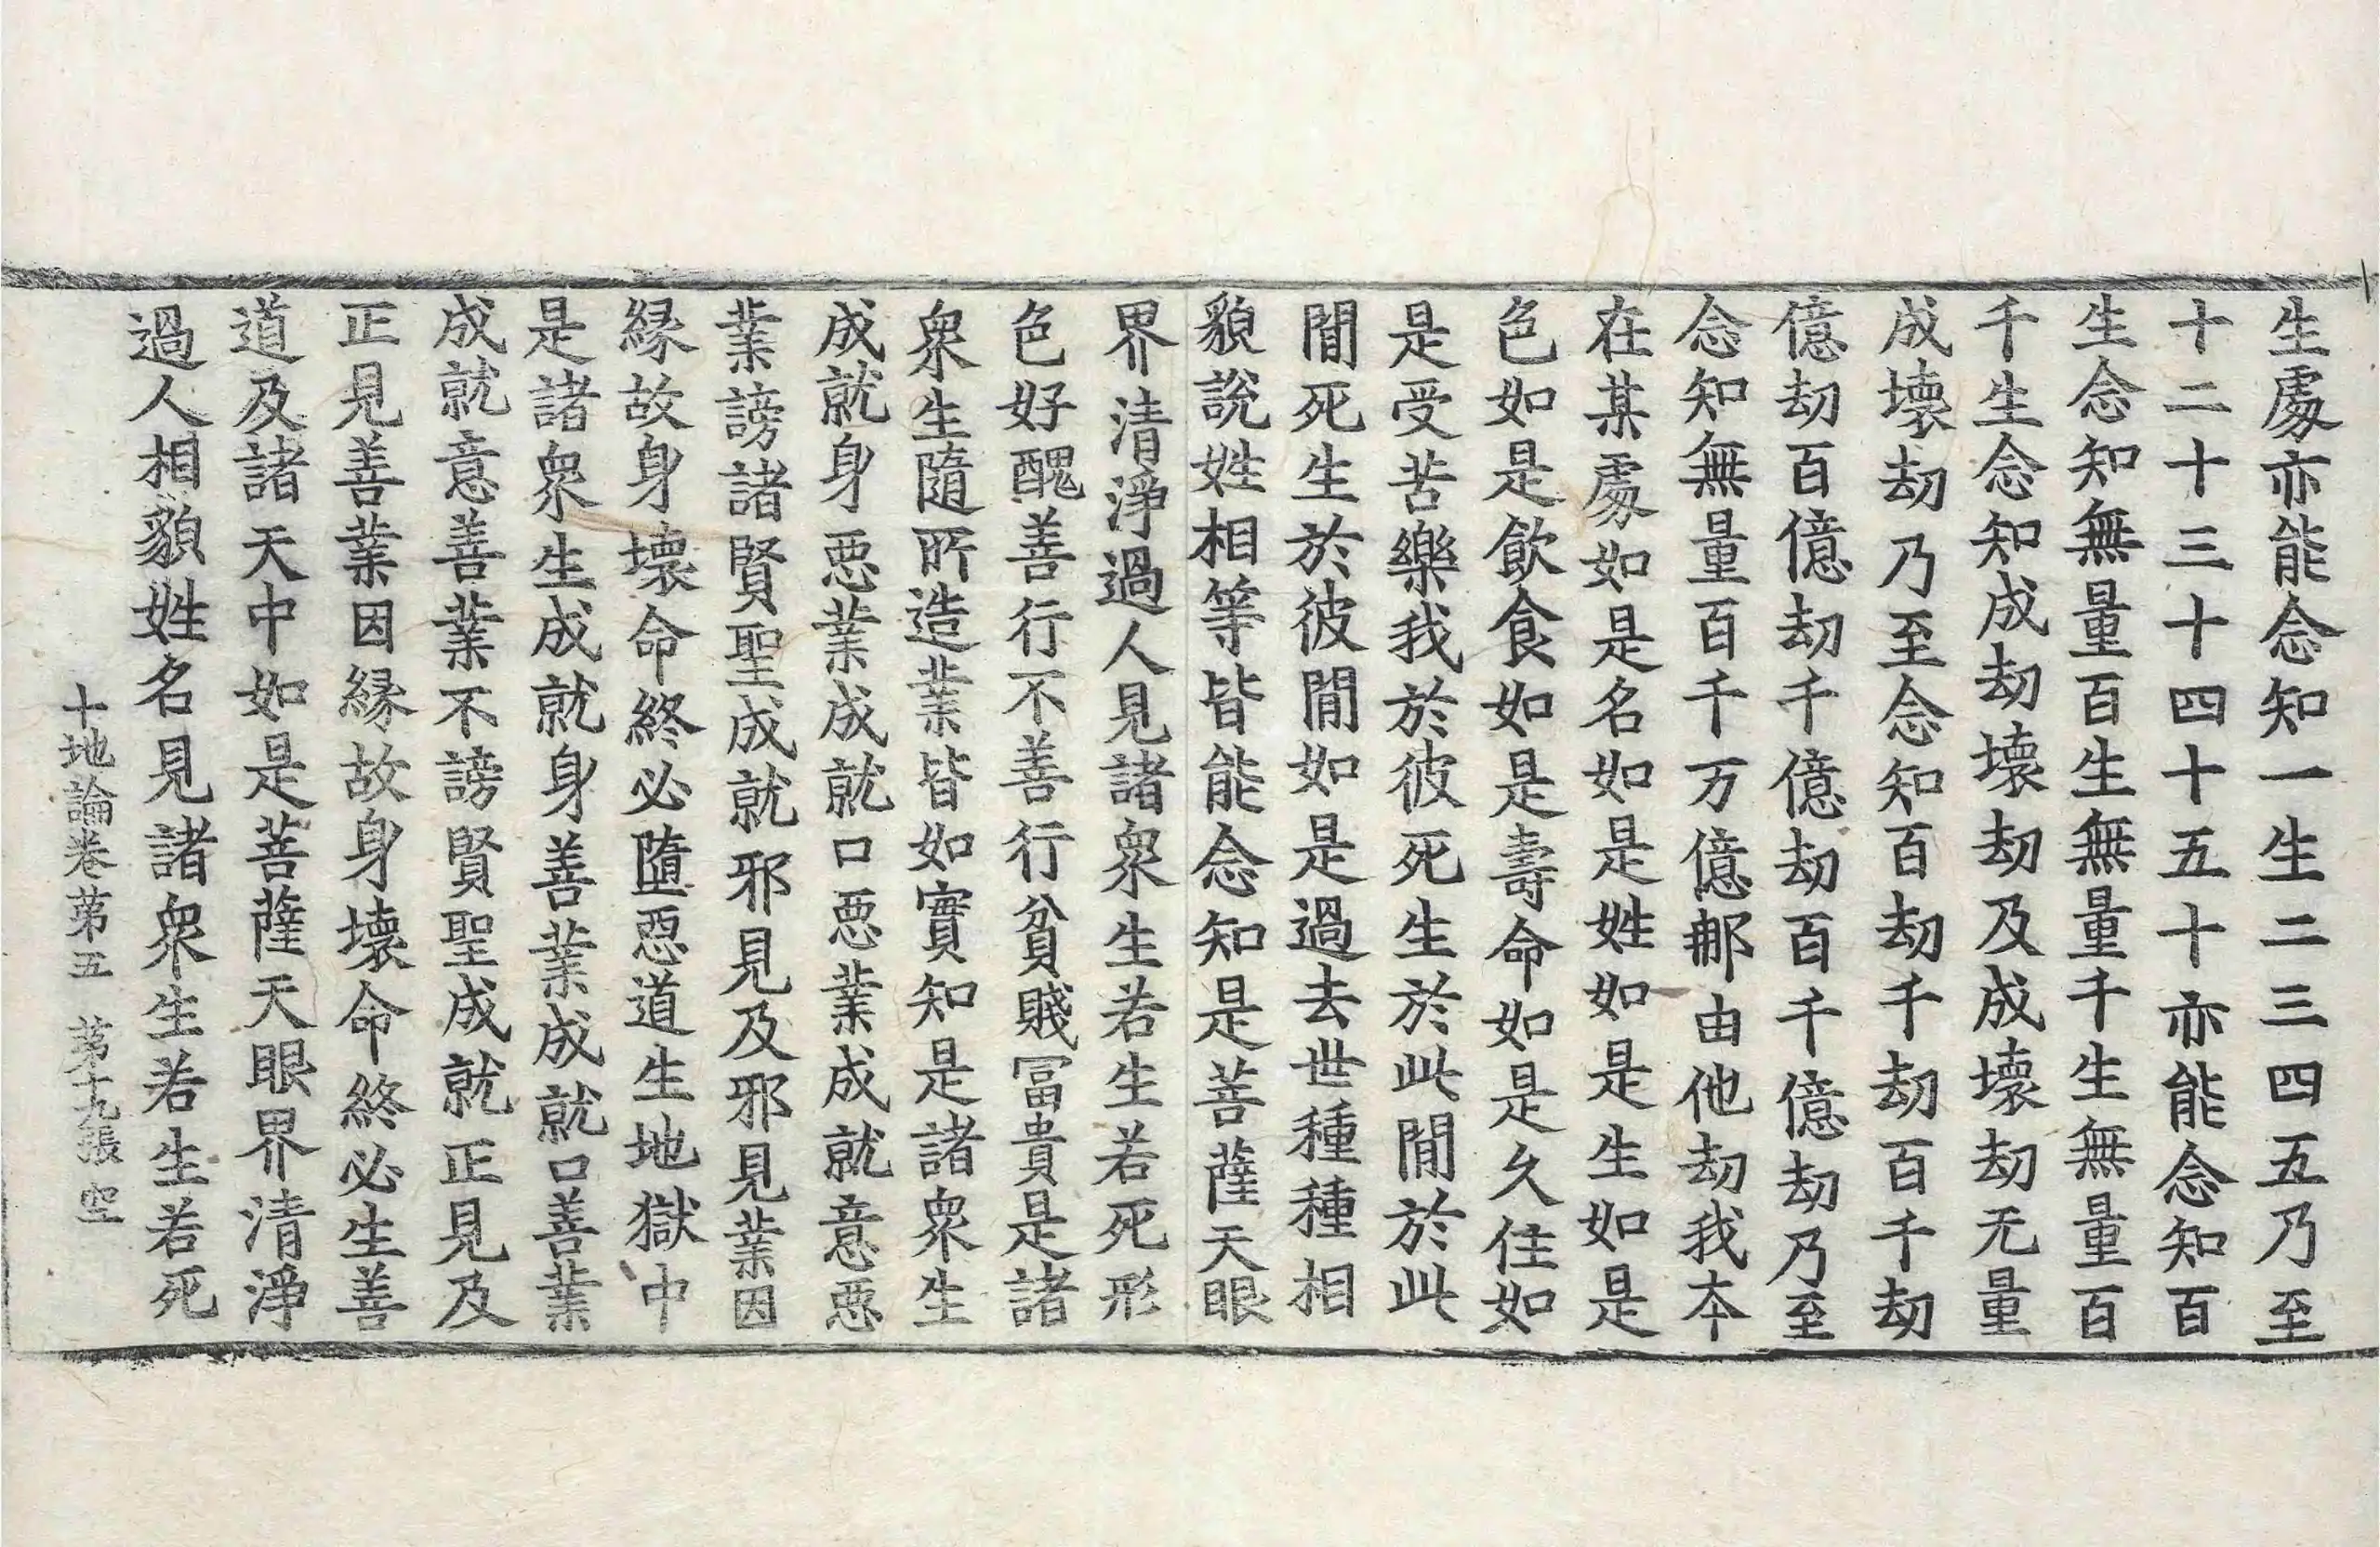 生䖏亦能念知一生二三四五乃至
十二十三十四十五十亦能念知百
生念知無量百生無量千生無量百
千生念知成劫壞劫及成壞劫无量
成壞劫乃至念知百劫千劫百千劫
億劫百億劫千億劫百千億劫乃至
念知無量百千万億那由他劫我本
在某䖏如是名如是姓如是生如是
色如是飲食如是壽命如是久住如
是受苦樂我於彼死生於此間於此
間死生於彼間如是過去世種種相
貌說姓相等皆能念知是菩薩天眼
界清淨過人見諸衆生若生若死形
色好醜善行不善行貧賤冨貴是諸
衆生隨所造業皆如實知是諸衆生
成就身惡業成就口惡業成就意惡
業謗諸賢聖成就邪見及邪見業因
緣故身壞命終必墮惡道生地獄中
是諸衆生成就身善業成就口善業
成就意善業不謗賢聖成就正見及
正見善業因緣故身壞命終必生善
道及諸天中如是菩薩天眼界清淨
過人相貌姓名見諸衆生若生若死
十地論卷第五　第十九張　空